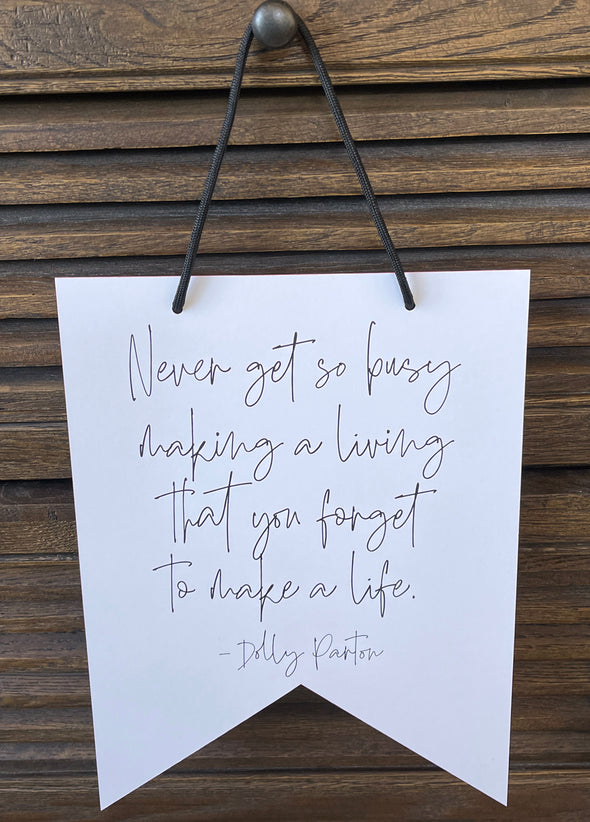 Never get so busy
making a living
that you forget
to make a life.
- Dolly Parton